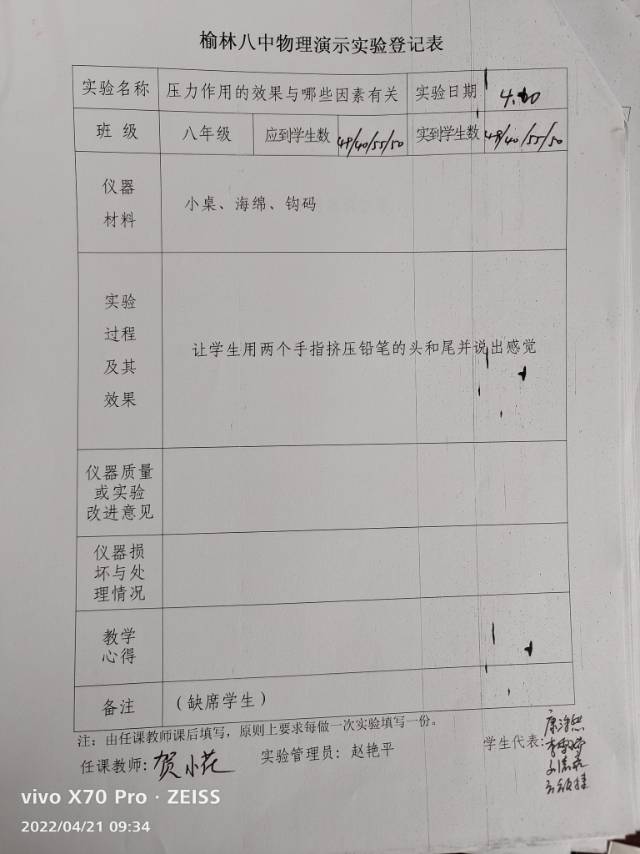 榆林八中物理演示实验登记表
实验名称 压力作用的效果与哪些因素有关 实验日期 4.20
班 级 八年级 应到学生数 48/40/55/50 实到学生数 48/40/55/50
仪器
材料
小桌、海绵、钩码
实验
过程
及其
效果
让学生用两个手指挤压铅笔的头和尾并说出感觉
仪器质量
或实验
改进意见
仪器损
坏与处
理情况
教学
心得
备注 (缺席学生)
注：由任课教师课后填写，原则上要求每做一次实验填写一份。
任课教师: 贺小花 实验管理员: 赵艳平 学生代表:
vivo X70 Pro · ZEISS
2022/04/21 09:34